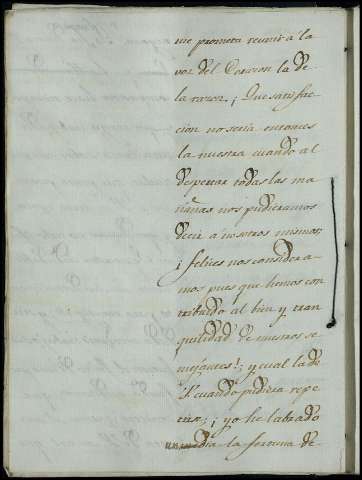 me prometa reunir a la
voz del Corazon la de
la razon. ¡ Que satisfac
cion no seria entonces
la nuestra cuando al
despertar todas las ma
ñanas nos pudieramos
decir a nosotros mismos
¡ felices nos considera
mos pues que hemos con
tribuido al bien y tran
quilidad de nuestros se
mejantes!; y cual la de
cuando pudiera repe
tirse; ¡ yo he labrado
la fortuna de